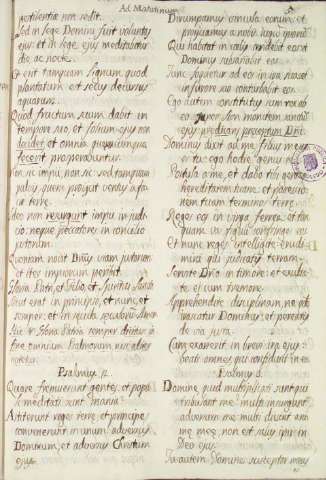 Ad Matutinum
pestilentiæ non sedit.
Sed in lege Domini fuit voluntas
ejus et in lege ejus meditabitur
die ac nocte.
Et erit tamquam lignum quod
plantatum est secus decursus
aquarum.
Quod fructum suum dabit in
tempore suo, et folium ejus non
decidet et omnia quæcumque
fecerit prosperabuntur.
Non sic impii, non sic sed tamquam
pulvis, quem projicit ventus a fa-
cie terræ.
Ideo non resurgunt impii in judi-
cio neque peccatores in concilio
justorum.
Quoniam novit Dñus viam justorum
et iter impiorum peribit.
Gloria Patri, et Filio, et Spiritui Sancto
Sicut erat in principio, et nunc, et
semper, et in sæcula sæculorum Amen
Gloria Patria semper dicitur in
fine omnium Psalmorum
notetur.
Psalmus 2.
Quare fremuerunt gentes, et populi
meditati sunt inania.
Astiterunt reges terræ et principes
convenerunt in unum adversus
Dominum, et adversus Christum
ejus.
Dirumpamus vincula eorum et
projiciamus a nobis jugum ipsorum
Qui habitat in cælis irridebit eos et
Dominus subsannabit eos.
Tunc loquetur ad eos in ira sua et
in furore suo conturbabit eos.
Ego autem constitutus sum rex ab
eo super Sion montem sanctum
ejus prædicans præceptum Dñi.
Dominus dixit ad me filius meus
es tu ego hodie genui te.
Postula a me, et dabo tibi gentes
hereditatem tuam, et possessio-
nem tuam terminos terræ.
Reges eos in virga ferrea, et tam-
quam vas figuli confringes eos
Et nunc reges intelligite erudi-
mini qui judicatis terram.
Servite Dño in timore et exulta-
te ei cum tremore.
Apprehendite disciplinam, ne quando
irascatur Dominus, et pereatis
de via justa.
Cum exarserit in brevi ira ejus
beati omnes qui confidunt in eo
Psalmus 3.
Domine, quid multiplicati sunt qui
tribulant me multi insurgunt
adversum me multi dicunt ani-
mæ meæ non est salus ipsi in
Deo ejus.
Tu autem Domine susceptor meus